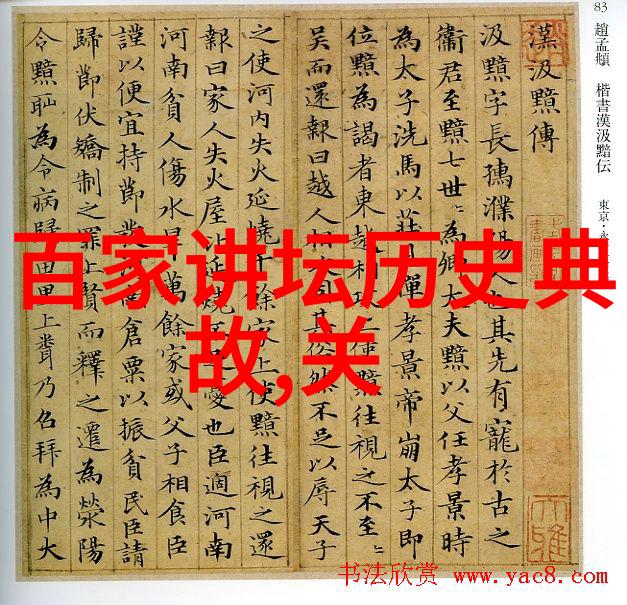 83 趙孟頫 楷書漢汲黯伝 東京·永
漢汲黯傳
汲黯字長孺濮陽人也其先有寵於古之
衛君至黯七世〻為卿大夫黯以父任孝景時
為太子洗馬以莊見憚孝景帝崩太子即
位黯為謁者東越相攻上使黯往視之不至〻
吳而還報曰越人相攻固其俗然不足以辱天子
之使河內失火延燒千餘家上使黯往視之還
報曰家人失火屋比延燒不足憂也臣適河南
河南貧人傷水旱萬餘家或父子相食臣
謹以便宜持節發河南倉粟以振貧民臣請
歸節伏矯制之罪上賢而釋之遷為滎陽
令黯恥為令病歸田里上聞乃召拜為中大
百家讲坛历史典
故,关
大雅
书法欣赏 www.yac8.com